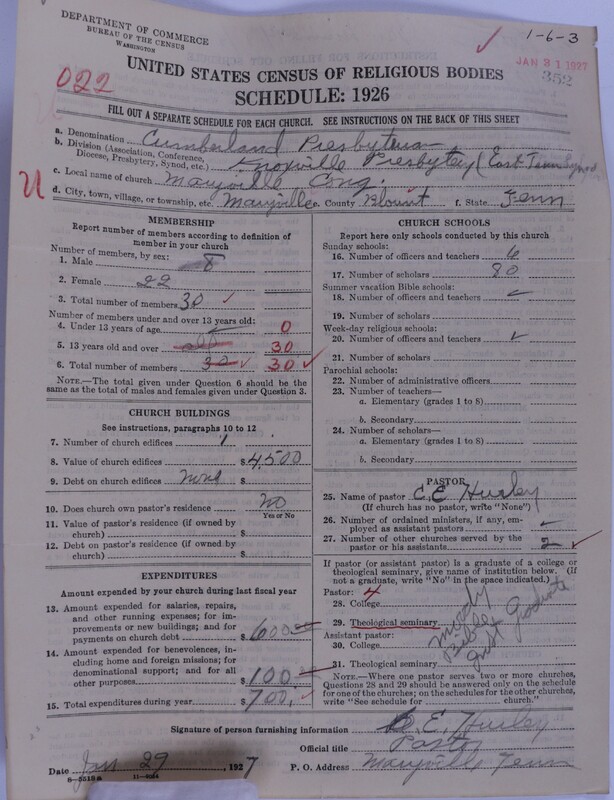 DEPARTMENT OF COMMERCE
BUREAU OF THE CENSUS
WASHINGTON
1-6-3
JAN 31 1927
352
022
UNITED STATES CENSUS OF RELIGIOUS BODIES
SCHEDULE: 1926
FILL OUT A SEPARATE SCHEDULE FOR EACH CHURCH. SEE INSTRUCTIONS ON THE BACK OF THIS SHEET
a. Denomination Cumberland Presbyterian
b. Division (Association, Conference, Diocese, Presbytery, Synod, etc.) Knoxville Presbytey (East Tenn Synod
c. Local name of church Maryville Cong.
d. City, town, village, or township, etc. Maryville e. County Blount f. State Tenn
MEMBERSHIP
Report number of members according to definition of
member in your church
Number of members, by sex:
1. Male 8
2. Female 22
3. Total number of members 30
Number of members under and over 13 years old:
4. Under 13 years of age 0
5. 13 years old and over all 30
6. Total number of members 30 30
NOTE.—The total given under Question 6 should be the
same as the total of males and females given under Question 3.
CHURCH BUILDINGS
See instructions, paragraphs 10 to 12
7. Number of church edifices 1
8. Value of church edifices $4,500
9. Debt on church edifices none
10. Does church own pastor's residence No
Yes or No
11. Value of pastor's residence (if owned by
church) $
12. Debt on pastor's residence (if owned by
church) $
EXPENDITURES
Amount expended by your church during last fiscal year
13. Amount expended for salaries, repairs,
and other running expenses; for im-
provements or new buildings; and for
payments on church debt $600
14. Amount expended for benevolences, in-
cluding home and foreign missions; for
denominational support; and for all
other purposes $100
15. Total expenditures during year $700
CHURCH SCHOOLS
Report here only schools conducted by this church
Sunday schools:
16. Number of officers and teachers 6
17. Number of scholars 80
Summer vacation Bible schools:
18. Number of officers and teachers
19. Number of scholars
Week-day religious schools:
20. Number of officers and teachers
21. Number of scholars
Parochial schools:
22. Number of administrative officers
23. Number of teachers—
a. Elementary (grades 1 to 8)
b. Secondary
24. Number of scholars—
a. Elementary (grades 1 to 8)
b. Secondary
PASTOR
25. Name of pastor C. E. Hurley
(If church has no pastor, write "None")
26. Number of ordained ministers, if any, em-
ployed as assistant pastors
27. Number of other churches served by the
pastor or his assistants 2
If pastor (or assistant pastor) is a graduate of a college or
theological seminary, give name of institution below. (If
not a graduate, write "No" in the space indicated.)
Pastor: 4
28. College
29. Theological seminary Moody Bible Inst Graduate
Assistant pastor:
30. College
31. Theological seminary
NOTE.—Where one pastor serves two or more churches,
Questions 28 and 29 should be answered only on the schedule
for one of the churches; on the schedules for the other churches,
write "See schedule for church."
Signature of person furnishing information C. E. Hurley
Official title Pastor
Date Jan 29, 1927 P. O. Address Maryville Tenn
8-5518a 11-9264